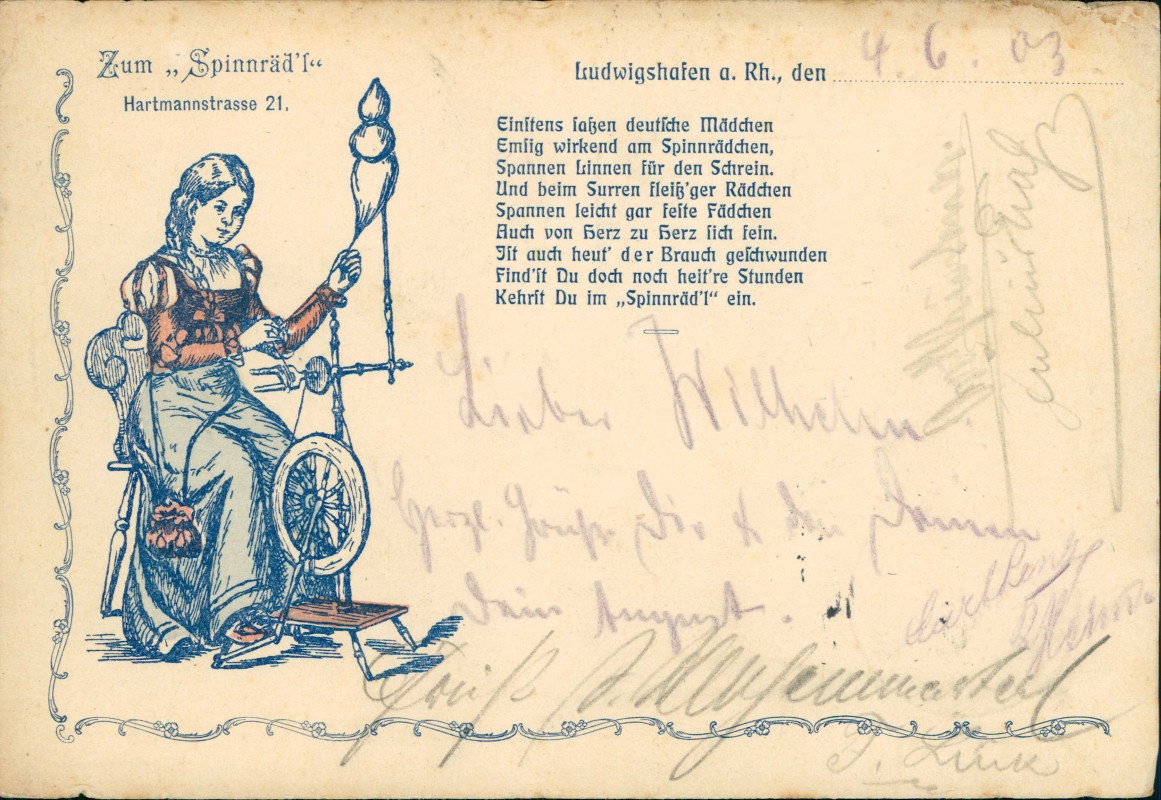 Zum „Spinnräd'l“
Hartmannstrasse 21.
Ludwigshafen a. Rh., den 4. 6. 03
Einſtens ſaßen deutſche Mädchen
Emſig wirkend am Spinnrädchen,
Spannen Linnen für den Schrein.
Und beim Surren fleiß'ger Rädchen
Spannen leicht gar feſte Fädchen
Auch von Herz zu Herz ſich fein.
Iſt auch heut' der Brauch geſchwunden
Find'ſt Du doch noch heit're Stunden
Kehrſt Du im „Spinnräd'l“ ein.
Lieber Wilhelm
Herzl. Grüße Dir & den Deinen
Dein August.
Gruß
J. Link